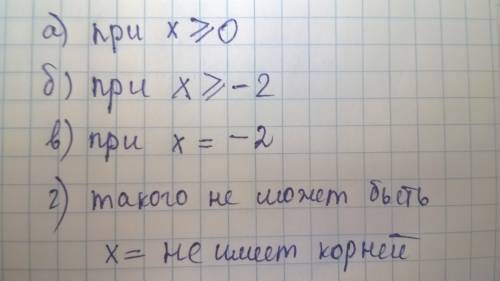 а) при x ⩾ 0
б) при x ⩾ -2
в) при x = -2
г) такого не может быть
x = не имеет корней